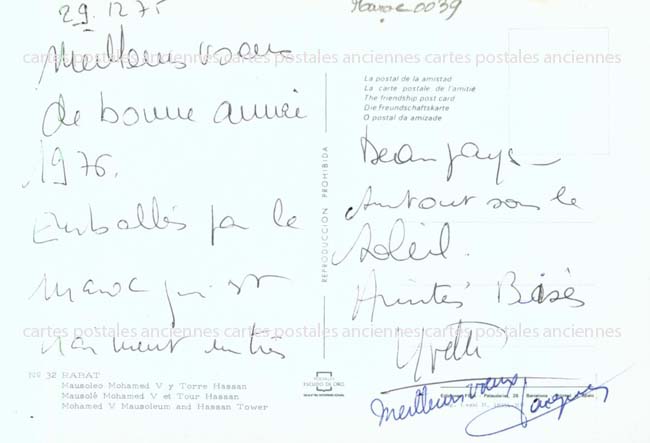 29.12.75
Maroc 0039
Meilleurs vœux
cartes postales anciennes cartes postales anciennes cartes postales anciennes
de bonne année
1976.
Emballés par le
Maroc qui est
vraiment un très
La postal de la amistad
La carte postale de l'amitié
The friendship post card
Die freundschaftskarte
O postal da amizade
REPRODUCCION PROHIBIDA
Beau pays
surtout sous le
soleil.
Amitiés Bises
cartes postales anciennes cartes postales anciennes cartes postales anciennes
Yvette
Meilleurs vœux
Jacques
Nº 32 RABAT
Mausoleo Mohamed V y Torre Hassan
Mausolé Mohamed V et Tour Hassan
Mohamed V Mausoleum and Hassan Tower
ESCUDO DE ORO